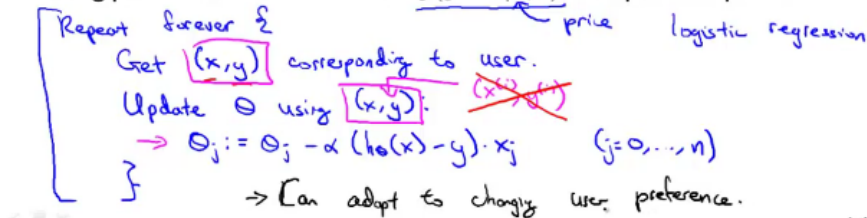 price logistic regression
Repeat forever {
Get (x,y) corresponding to user.
Update θ using (x,y): (x⁽ⁱ⁾,y⁽ⁱ⁾)
→ θⱼ := θⱼ - α (hθ(x) - y) · xⱼ (j=0,...,n)
}
→ Can adapt to changing user preference.